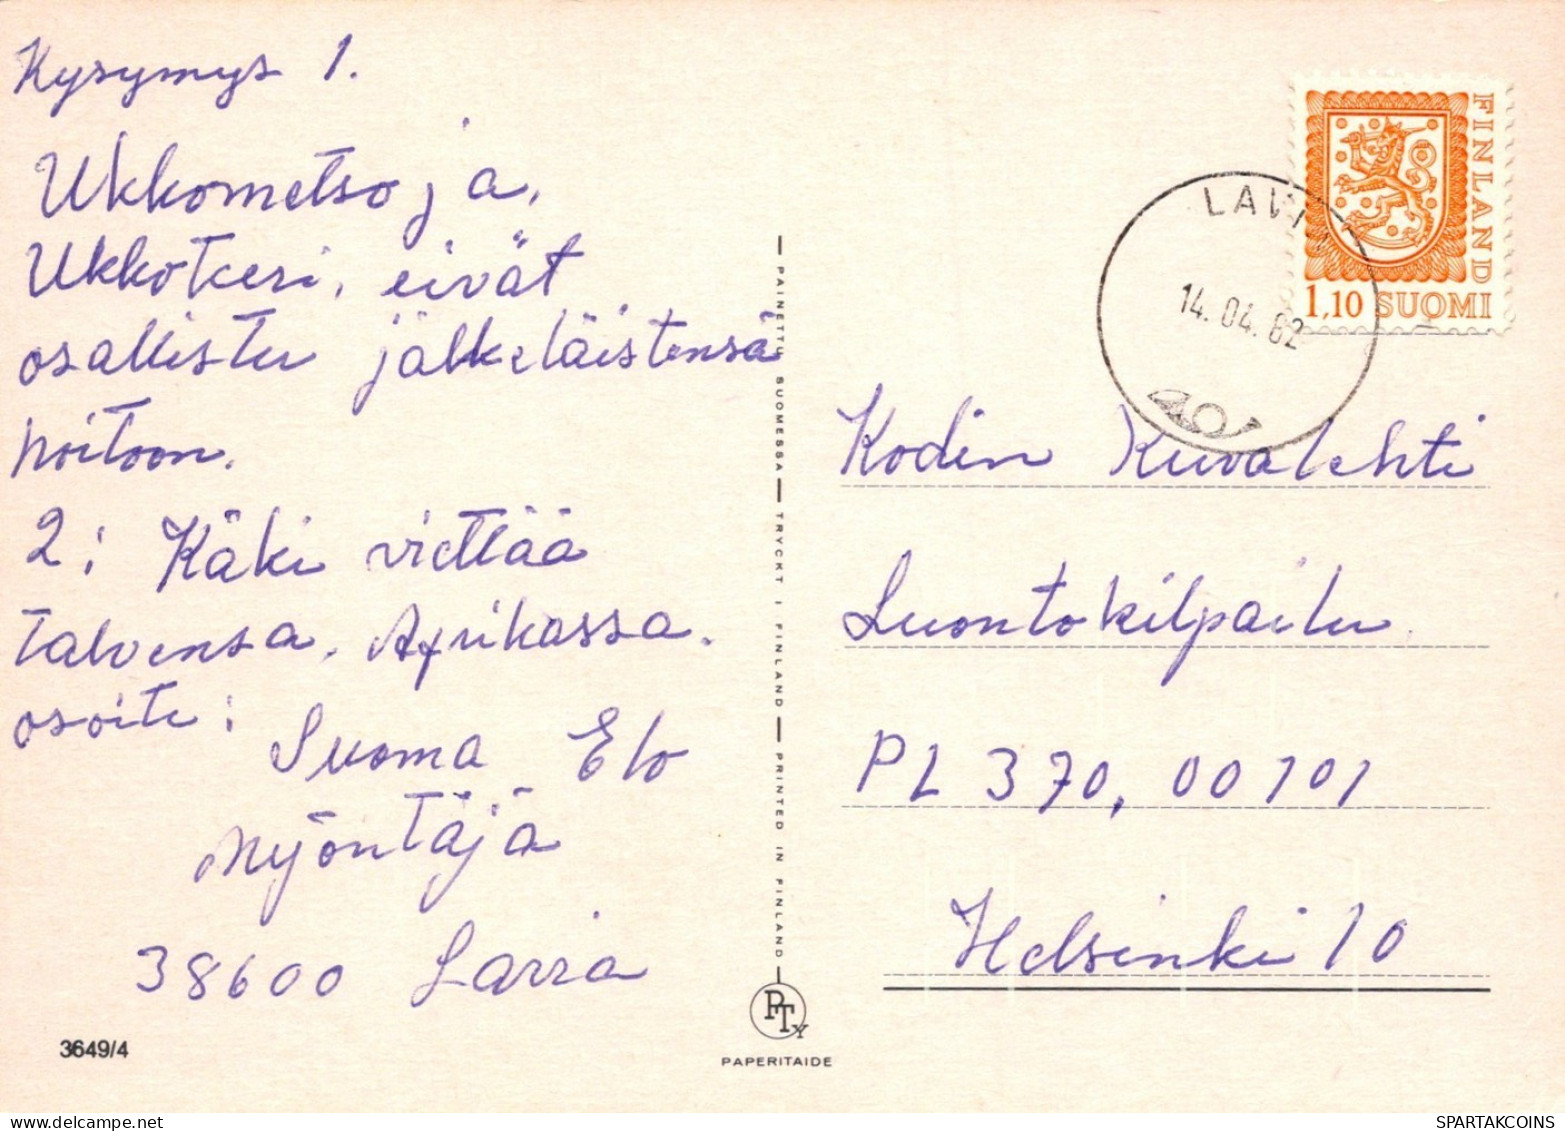 Kysymys 1.
Ukkometso ja,
Ukkoteeri, eivät
osallistu jälkeläistensä
hoitoon.
2: Käki viettää
talvensa, Afrikassa.
osoite:
Suoma Elo
Myöntäjä
38600 Lavia
3649/4
PAINETTU SUOMESSA — TRYCKT I FINLAND — PRINTED IN FINLAND
PTY
PAPERITAIDE
FINLAND
1,10 SUOMI
LAVIA
14.04.82
Kodin Kuvalehti
Luontokilpailu
PL 370, 00101
Helsinki 10
SPARTAKCOINS